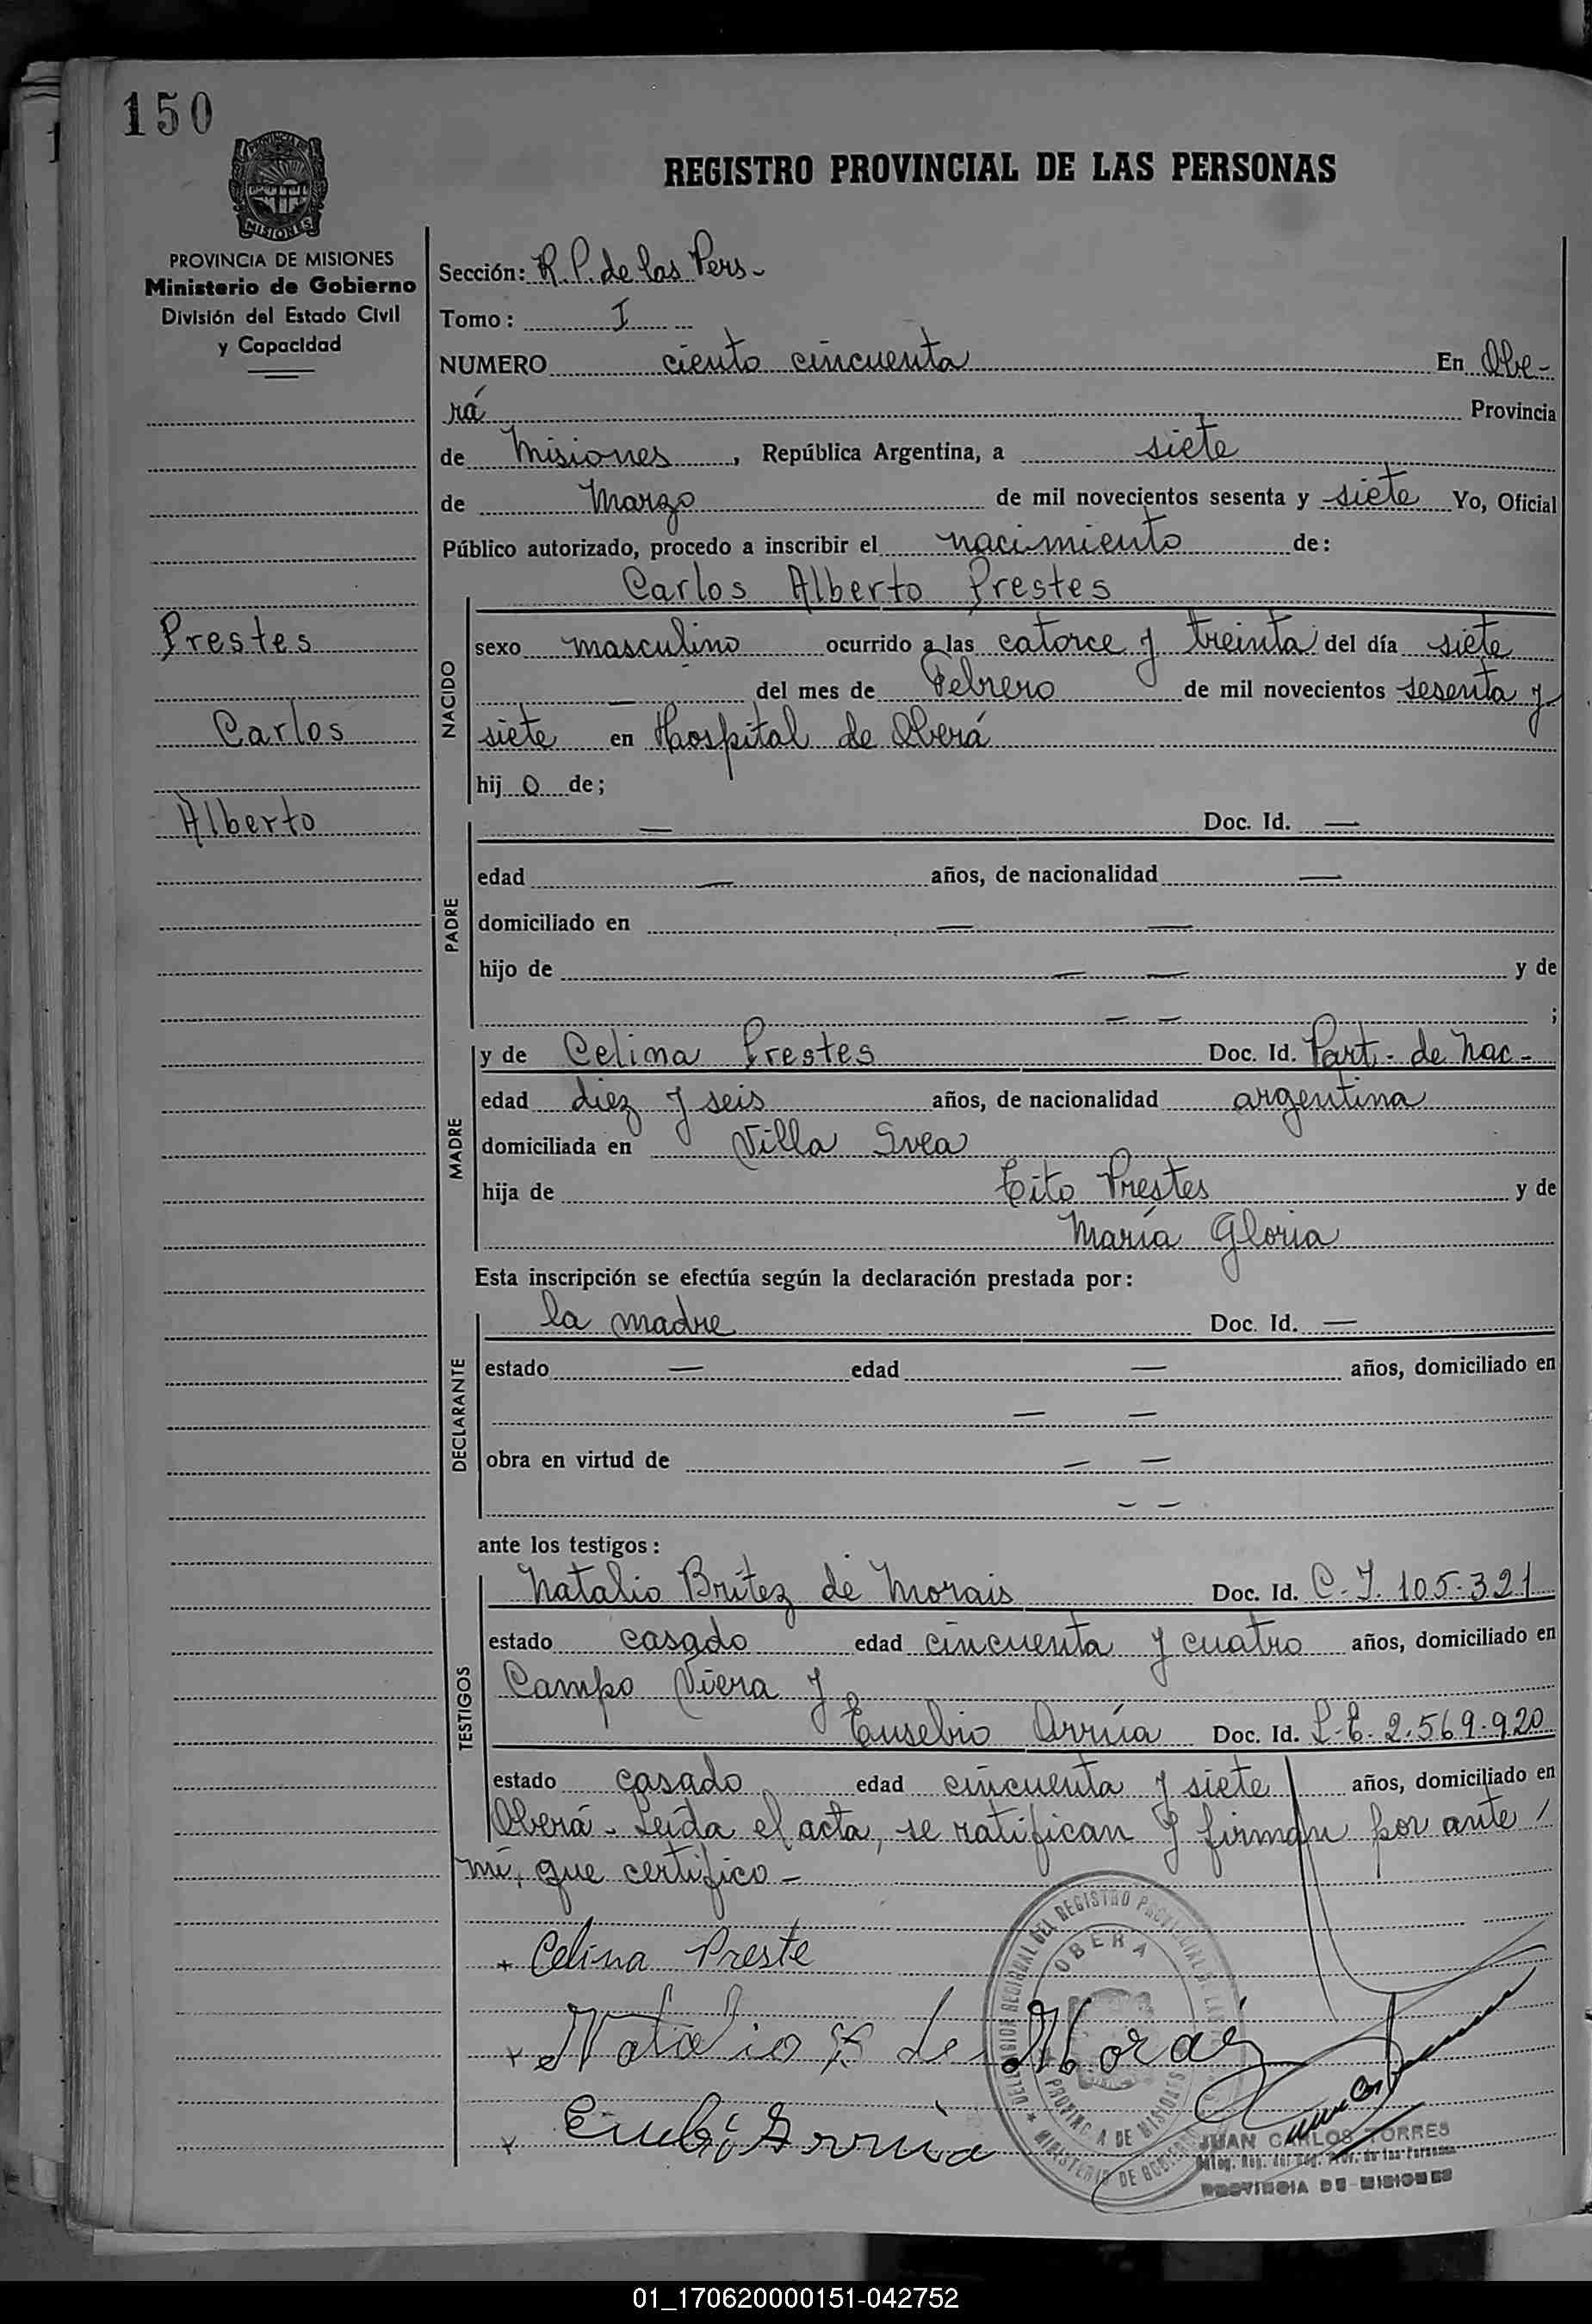 150
PROVINCIA DE MISIONES
Ministerio de Gobierno
División del Estado Civil
y Capacidad
Prestes
Carlos
Alberto
REGISTRO PROVINCIAL DE LAS PERSONAS
Sección: R. P. de las Pers -
Tomo: I
NUMERO ciento cincuenta En Obe-
rá Provincia
de Misiones, República Argentina, a siete
de Marzo de mil novecientos sesenta y siete Yo, Oficial
Público autorizado, procedo a inscribir el nacimiento de:
Carlos Alberto Prestes
NACIDO
sexo masculino ocurrido a las catorce y treinta del día siete
— del mes de Febrero de mil novecientos sesenta y
siete en Hospital de Oberá
hij o de;
PADRE
— Doc. Id. —
edad — años, de nacionalidad —
domiciliado en — —
hijo de — — y de
— — ;
MADRE
y de Celina Prestes Doc. Id. Part. de Nac -
edad diez y seis años, de nacionalidad argentina
domiciliada en Villa Svea
hija de Tito Prestes y de
María Gloria
Esta inscripción se efectúa según la declaración prestada por:
DECLARANTE
la madre Doc. Id. —
estado — edad — años, domiciliado en
— —
obra en virtud de — —
— —
ante los testigos:
TESTIGOS
Natalio Britez de Morais Doc. Id. C. I. 105.321
estado casado edad cincuenta y cuatro años, domiciliado en
Campo Viera y
Eusebio Arrúa Doc. Id. L. E. 2.569.920
estado casado edad cincuenta y siete años, domiciliado en
Oberá - Leída el acta, se ratifican y firman por ante
mí, que certifico -
Celina Preste
Natalio B de Morais
Arrua
DELEGACION REGIONAL DEL REGISTRO PROVINCIAL DE LAS
OBERA
PROVINCIA DE MISIONES
MINISTERIO DE GOBIERNO
JUAN CARLOS TORRES
Deleg. Reg. del Reg. Prov. de las Personas
PROVINCIA DE MISIONES
01_170620000151-042752